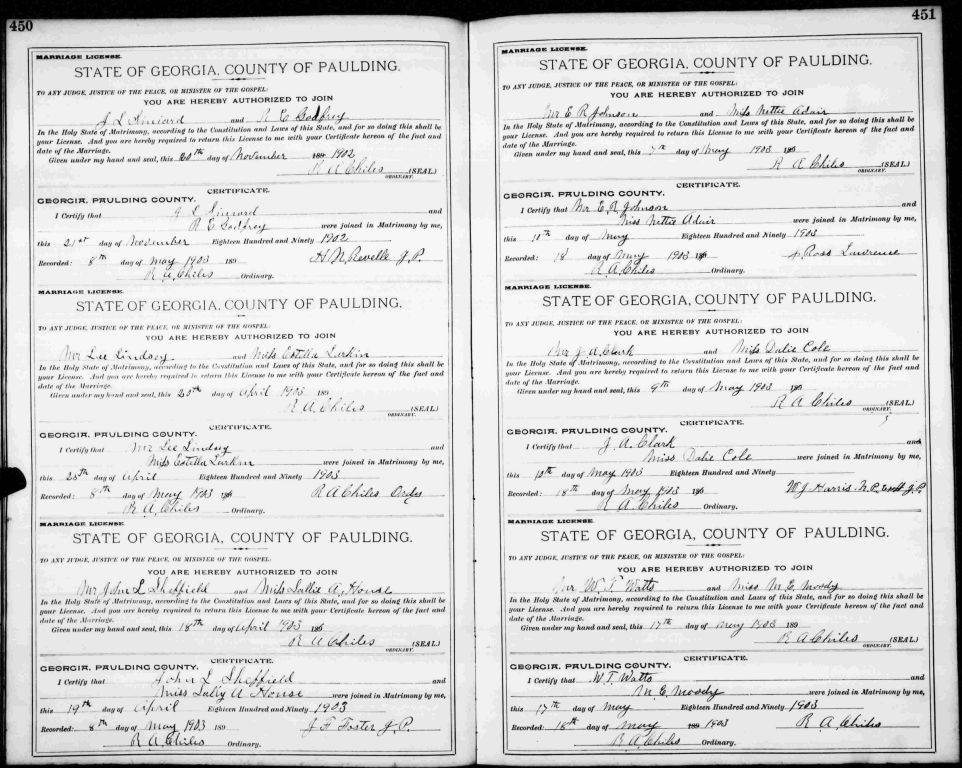 450
MARRIAGE LICENSE.
STATE OF GEORGIA, COUNTY OF PAULDING.
TO ANY JUDGE, JUSTICE OF THE PEACE, OR MINISTER OF THE GOSPEL:
YOU ARE HEREBY AUTHORIZED TO JOIN
J L and R E Godfrey
In the Holy State of Matrimony, according to the Constitution and Laws of this State, and for so doing this shall be
your License. And you are hereby required to return this License to me with your Certificate hereon of the fact and
date of the Marriage.
Given under my hand and seal, this 20th day of November 189 1902
R A Chiles (SEAL)
ORDINARY.
CERTIFICATE.
GEORGIA, PAULDING COUNTY.
I Certify that J L and
R E Godfrey were joined in Matrimony by me,
this 21st day of November Eighteen Hundred and Ninety 1902
Recorded: 8th day of May 1903 189 H. M. Revelle J.P.
R A Chiles Ordinary.
MARRIAGE LICENSE.
STATE OF GEORGIA, COUNTY OF PAULDING.
TO ANY JUDGE, JUSTICE OF THE PEACE, OR MINISTER OF THE GOSPEL:
YOU ARE HEREBY AUTHORIZED TO JOIN
Mr Lee Lindsey and Miss Estella Larkin
In the Holy State of Matrimony, according to the Constitution and Laws of this State, and for so doing this shall be
your License. And you are hereby required to return this License to me with your Certificate hereon of the fact and
date of the Marriage.
Given under my hand and seal, this 25th day of April 1903 189
R A Chiles (SEAL)
ORDINARY.
CERTIFICATE.
GEORGIA, PAULDING COUNTY.
I Certify that Mr Lee Lindsey and
Miss Estella Larkin were joined in Matrimony by me,
this 25th day of April Eighteen Hundred and Ninety 1903
Recorded: 8th day of May 1903 189 R A Chiles Ordy
R A Chiles Ordinary.
MARRIAGE LICENSE.
STATE OF GEORGIA, COUNTY OF PAULDING.
TO ANY JUDGE, JUSTICE OF THE PEACE, OR MINISTER OF THE GOSPEL:
YOU ARE HEREBY AUTHORIZED TO JOIN
Mr John L Sheffield and Miss Sallie A. House
In the Holy State of Matrimony, according to the Constitution and Laws of this State, and for so doing this shall be
your License. And you are hereby required to return this License to me with your Certificate hereon of the fact and
date of the Marriage.
Given under my hand and seal, this 18th day of April 1903 189
R A Chiles (SEAL)
ORDINARY.
CERTIFICATE.
GEORGIA, PAULDING COUNTY.
I Certify that John L Sheffield and
Miss Sally A House were joined in Matrimony by me,
this 19th day of April Eighteen Hundred and Ninety 1903
Recorded: 8th day of May 1903 189 J F Foster J.P.
R A Chiles Ordinary.
451
MARRIAGE LICENSE.
STATE OF GEORGIA, COUNTY OF PAULDING.
TO ANY JUDGE, JUSTICE OF THE PEACE, OR MINISTER OF THE GOSPEL:
YOU ARE HEREBY AUTHORIZED TO JOIN
Mr E. R. Johnson and Miss Nettie Adair
In the Holy State of Matrimony, according to the Constitution and Laws of this State, and for so doing this shall be
your License. And you are hereby required to return this License to me with your Certificate hereon of the fact and
date of the Marriage.
Given under my hand and seal, this 7th day of May 1903 189
R A Chiles (SEAL)
ORDINARY.
CERTIFICATE.
GEORGIA, PAULDING COUNTY.
I Certify that Mr E. R. Johnson and
Miss Nettie Adair were joined in Matrimony by me,
this 10th day of May Eighteen Hundred and Ninety 1903
Recorded: 18 day of May 1903 189 Ross Lawrence
R. A. Chiles Ordinary.
MARRIAGE LICENSE.
STATE OF GEORGIA, COUNTY OF PAULDING.
TO ANY JUDGE, JUSTICE OF THE PEACE, OR MINISTER OF THE GOSPEL:
YOU ARE HEREBY AUTHORIZED TO JOIN
Mr J. A. Clark and Miss Dalie Cole
In the Holy State of Matrimony, according to the Constitution and Laws of this State, and for so doing this shall be
your License. And you are hereby required to return this License to me with your Certificate hereon of the fact and
date of the Marriage.
Given under my hand and seal, this 9th day of May 1903 189
R A Chiles (SEAL)
ORDINARY.
CERTIFICATE.
GEORGIA, PAULDING COUNTY.
I Certify that J. A. Clark and
Miss Dalie Cole were joined in Matrimony by me,
this 10th day of May 1903 Eighteen Hundred and Ninety
Recorded: 18th day of May 1903 189 W J Harris N.P. J.P.
R A Chiles Ordinary.
MARRIAGE LICENSE.
STATE OF GEORGIA, COUNTY OF PAULDING.
TO ANY JUDGE, JUSTICE OF THE PEACE, OR MINISTER OF THE GOSPEL:
YOU ARE HEREBY AUTHORIZED TO JOIN
Mr W. T. Watts and Miss M. E. Moody
In the Holy State of Matrimony, according to the Constitution and Laws of this State, and for so doing this shall be
your License. And you are hereby required to return this License to me with your Certificate hereon of the fact and
date of the Marriage.
Given under my hand and seal, this 17th day of May 1903 189
R A Chiles (SEAL)
ORDINARY.
CERTIFICATE.
GEORGIA, PAULDING COUNTY.
I Certify that W T. Watts and
M. E. Moody were joined in Matrimony by me,
this 17th day of May Eighteen Hundred and Ninety 1903
Recorded: 18th day of May 189 1903 R. A. Chiles
R. A. Chiles Ordinary.